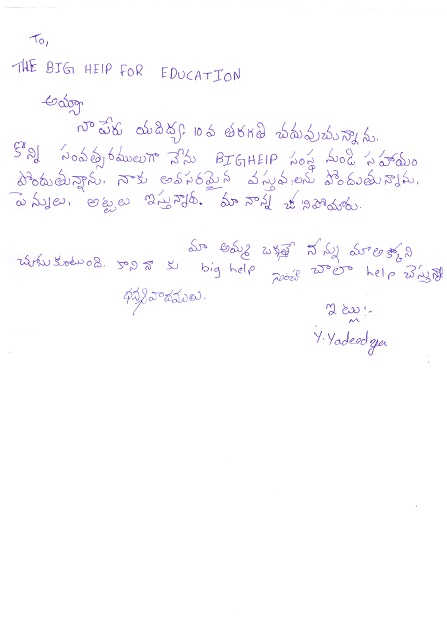 To,
THE BIG HELP FOR EDUCATION
అయ్యా
నా పేరు యదిద్య 10వ తరగతి చదువుచున్నాను.
కొన్ని సంవత్సరములుగా నేను BIGHELP సంస్థ నుండి సహాయం
పొందుతున్నాను. నాకు అవసరమైన వస్తువులను పొందుతున్నాను.
పెన్నులు, అట్టలు ఇస్తున్నారు. మా నాన్న చనిపోయారు.
మా అమ్మ ఒక్కతే నన్ను మా అక్కని
చూసుకుంటుంది. కాని నాకు big help నుంచి చాలా help చేస్తున్నారు
ధన్యవాదములు.
ఇట్లు:-
Y. Yadeedya